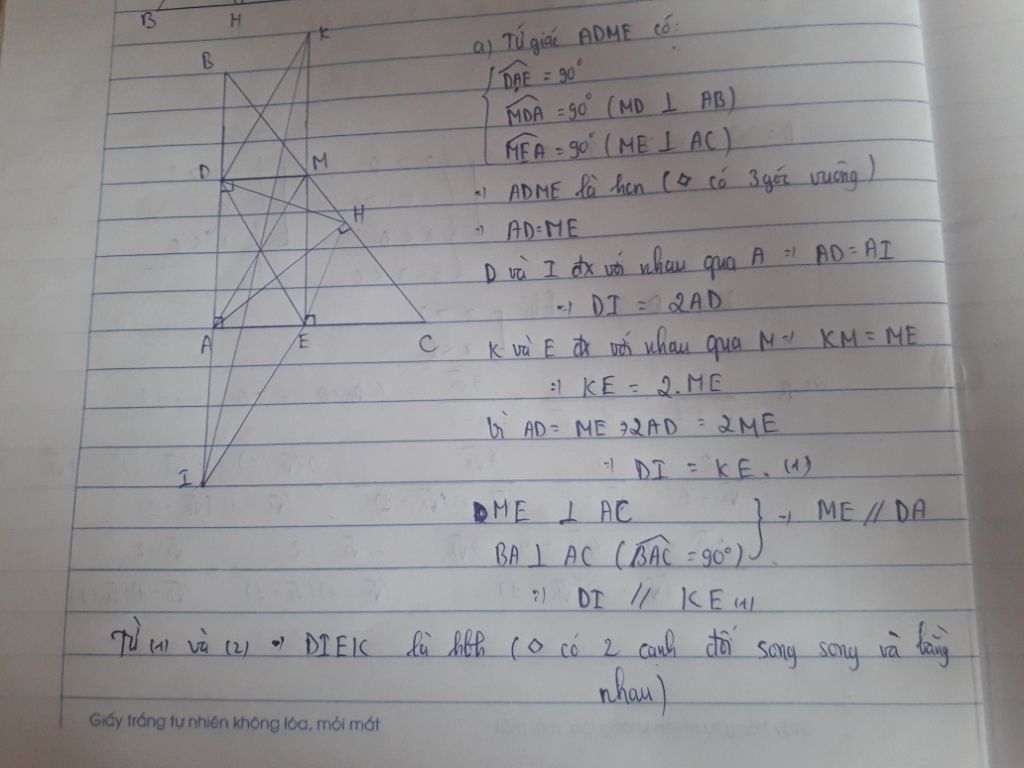 B H
K
B
D M
H
A E C
I
a) Tứ giác ADME có:
DAE = 90°
MDA = 90° (MD ⊥ AB)
MEA = 90° (ME ⊥ AC)
=> ADME là hcn (◇ có 3 góc vuông)
=> AD=ME
D và I đx với nhau qua A => AD = AI
=> DI = 2AD
K và E đx với nhau qua M => KM = ME
=> KE = 2.ME
Vì AD = ME => 2AD = 2ME
=> DI = KE. (1)
ME ⊥ AC
BA ⊥ AC (BAC = 90°) } => ME // DA
=> DI // KE (1)
Từ (1) và (2) => DIEK là hbh (◇ có 2 cạnh đối song song và bằng
nhau)
Giấy trắng tự nhiên không lóa, mỏi mắt